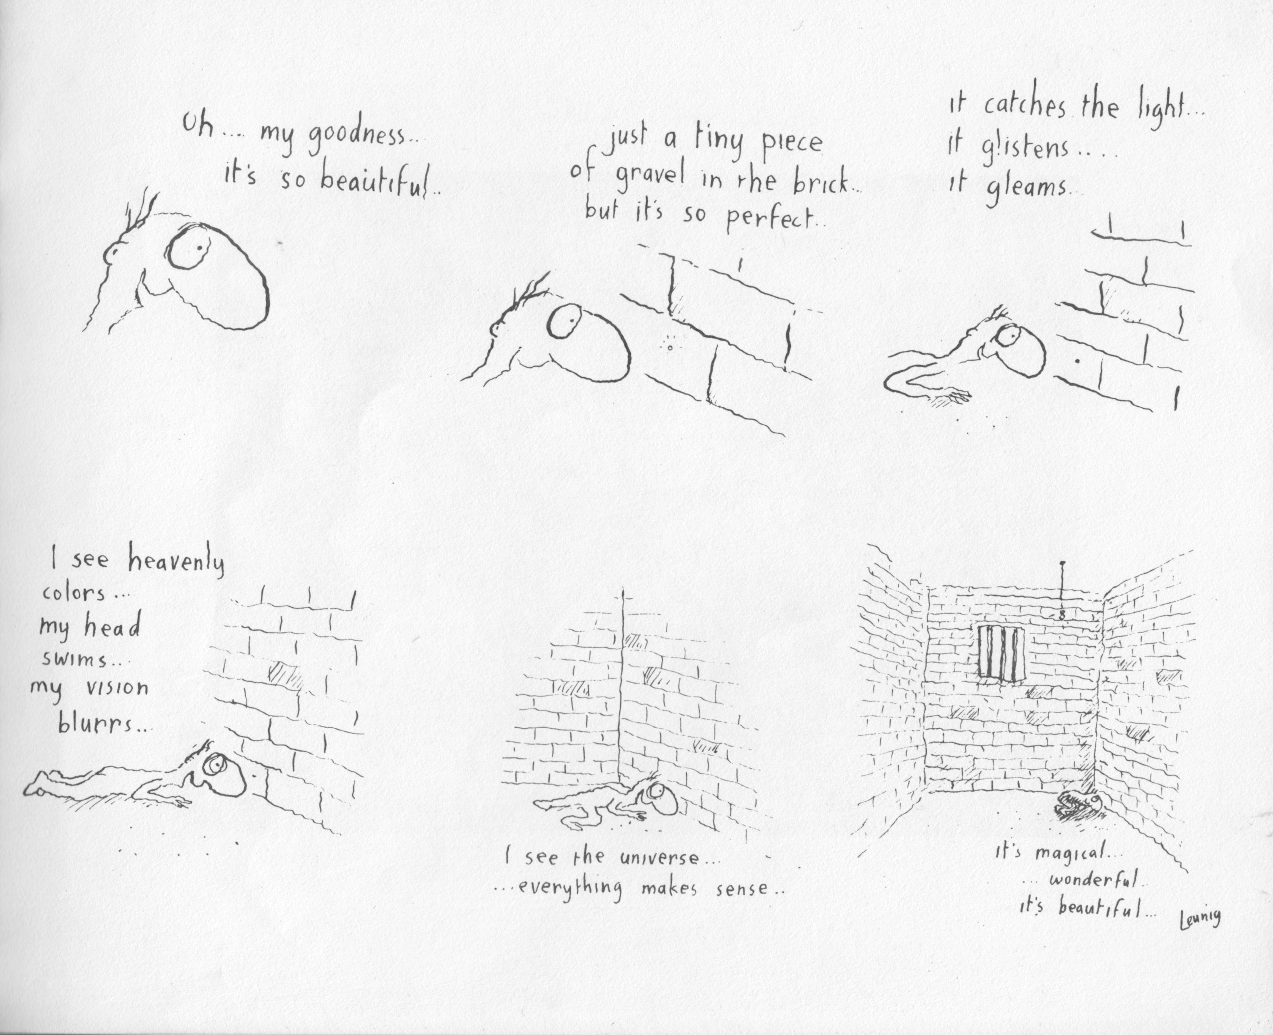 Oh.... my goodness..
it's so beautiful..
just a tiny piece
of gravel in the brick..
but it's so perfect..
it catches the light...
it glistens....
it gleams..
I see heavenly
colors...
my head
swims...
my vision
blurrs...
I see the universe...
...everything makes sense..
it's magical...
...wonderful..
it's beautiful...
Leunig